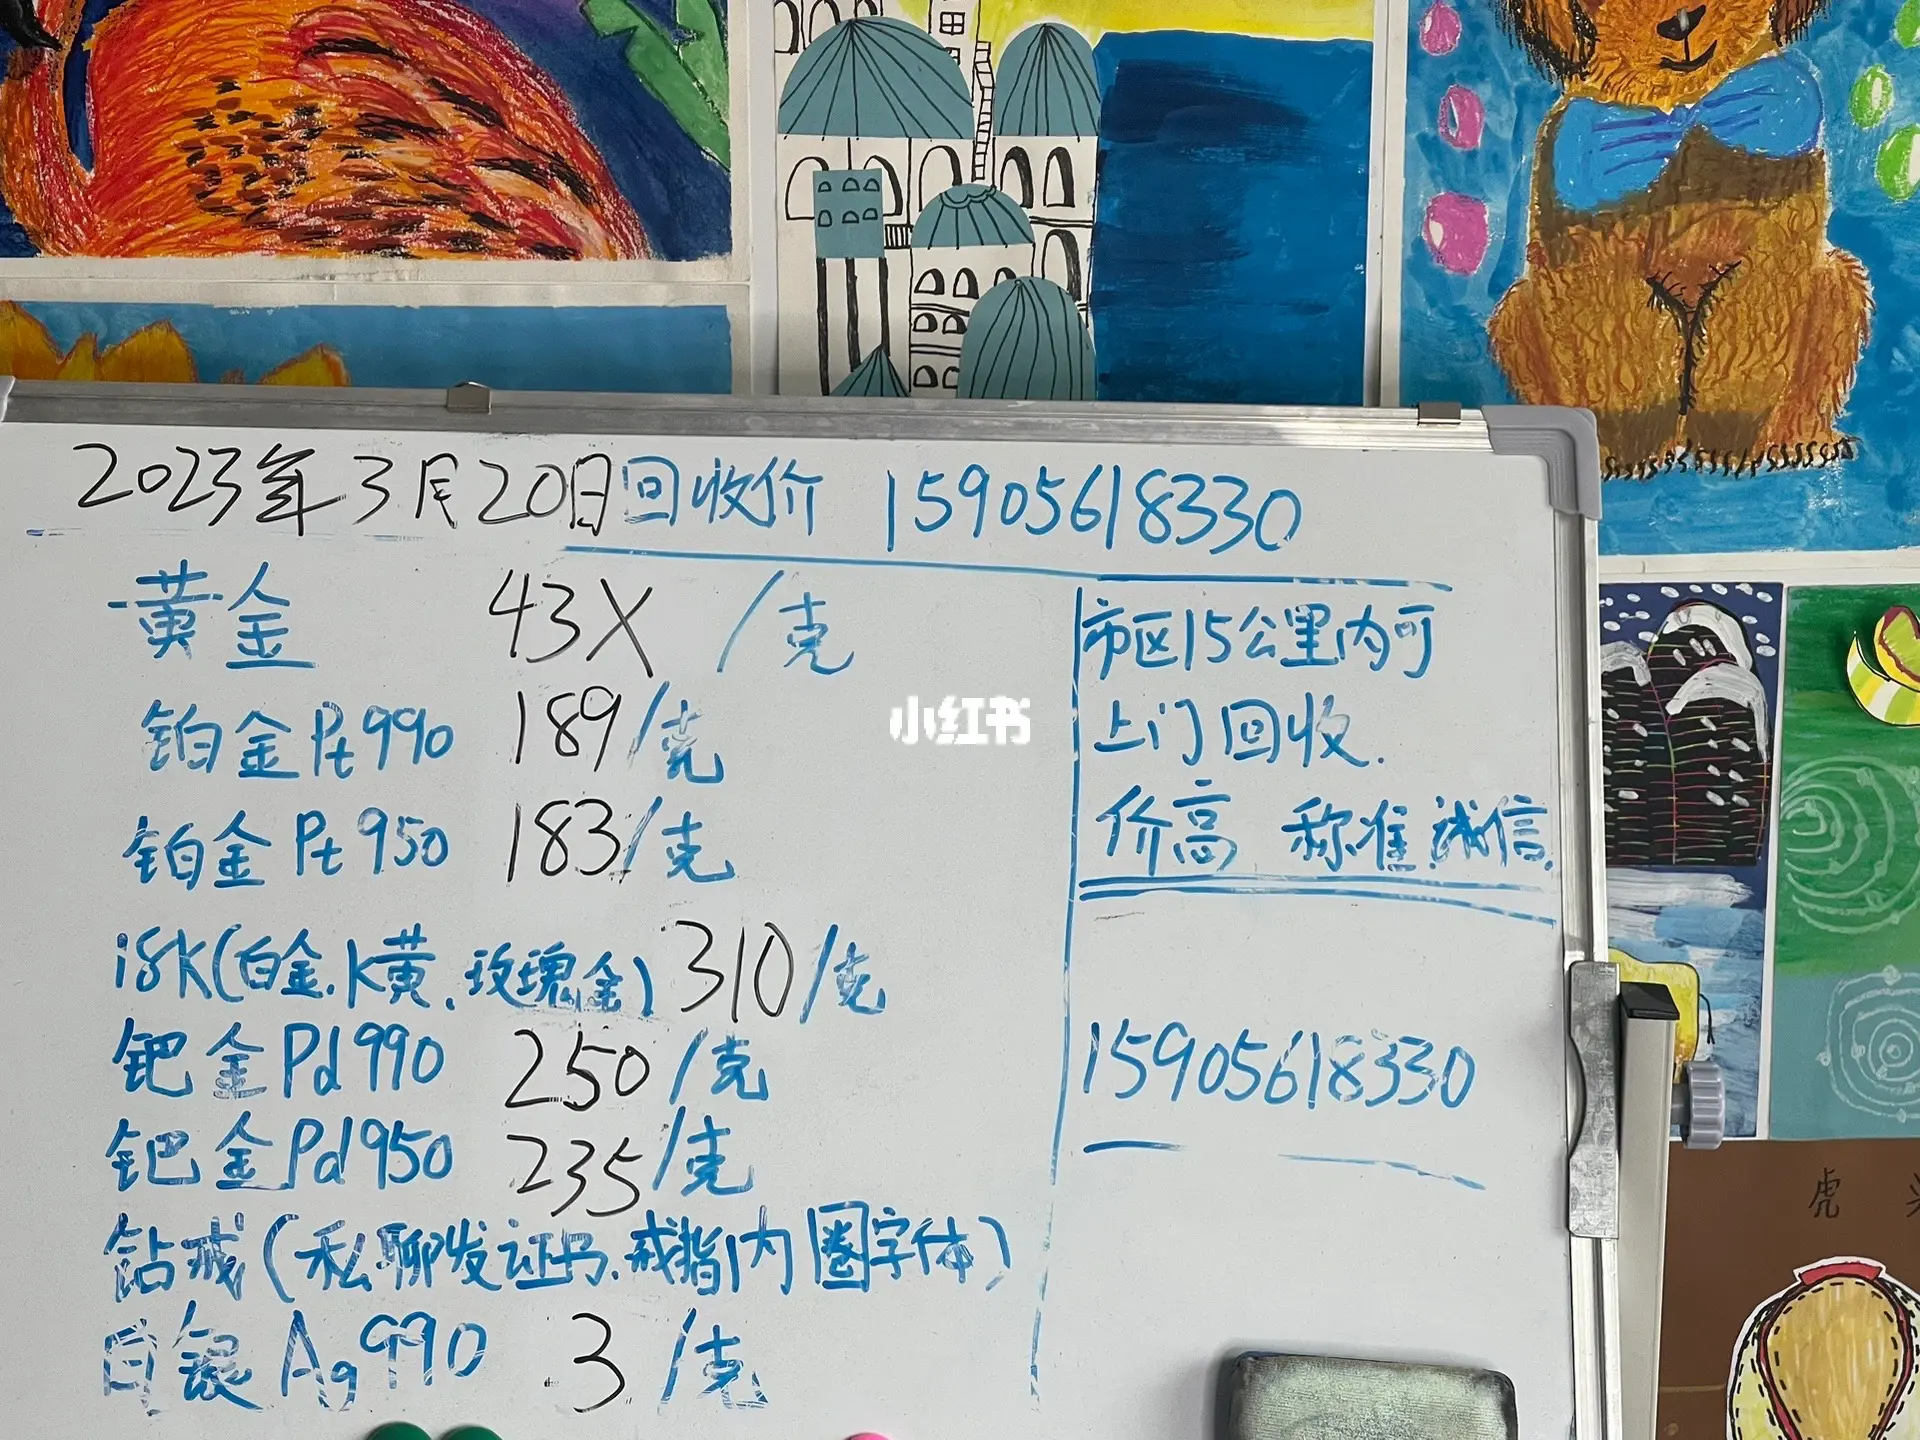 2023年3月20日回收价 15905618330
黄金 43X /克
铂金Pt990 189/克
铂金Pt950 183/克
18K(白金.K黄.玫瑰金) 310/克
钯金Pd990 250/克
钯金Pd950 235/克
钻戒(私聊发证书.戒指内圈字体)
白银Ag990 3/克
市区15公里内可
上门回收.
价高 称准.诚信.
15905618330
小红书
虎